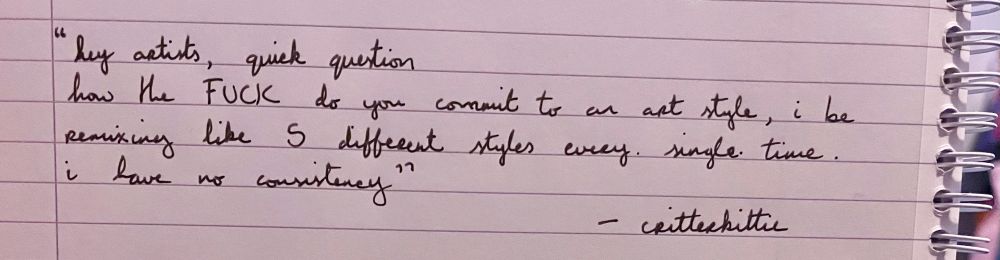 “hey artists, quick question
how the FUCK do you commit to an art style, i be
remixing like 5 different styles every. single. time.
i have no consistency”
– critterkittie